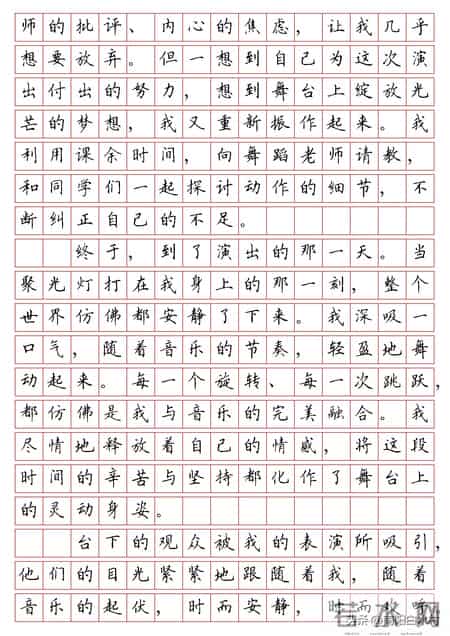 师的批评、内心的焦虑，让我几乎
想要放弃。但一想到自己为这次演
出付出的努力，想到舞台上绽放光
芒的梦想，我又重新振作起来。我
利用课余时间，向舞蹈老师请教，
和同学们一起探讨动作的细节，不
断纠正自己的不足。
终于，到了演出的那一天。当
聚光灯打在我身上的那一刻，整个
世界仿佛都安静了下来。我深吸一
口气，随着音乐的节奏，轻盈地舞
动起来。每一个旋转、每一次跳跃，
都仿佛是我与音乐的完美融合。我
尽情地释放着自己的情感，将这段
时间的辛苦与坚持都化作了舞台上
的灵动身姿。
台下的观众被我的表演所吸引，
他们的目光紧紧地跟随着我，随着
音乐的起伏，时而安静，时而